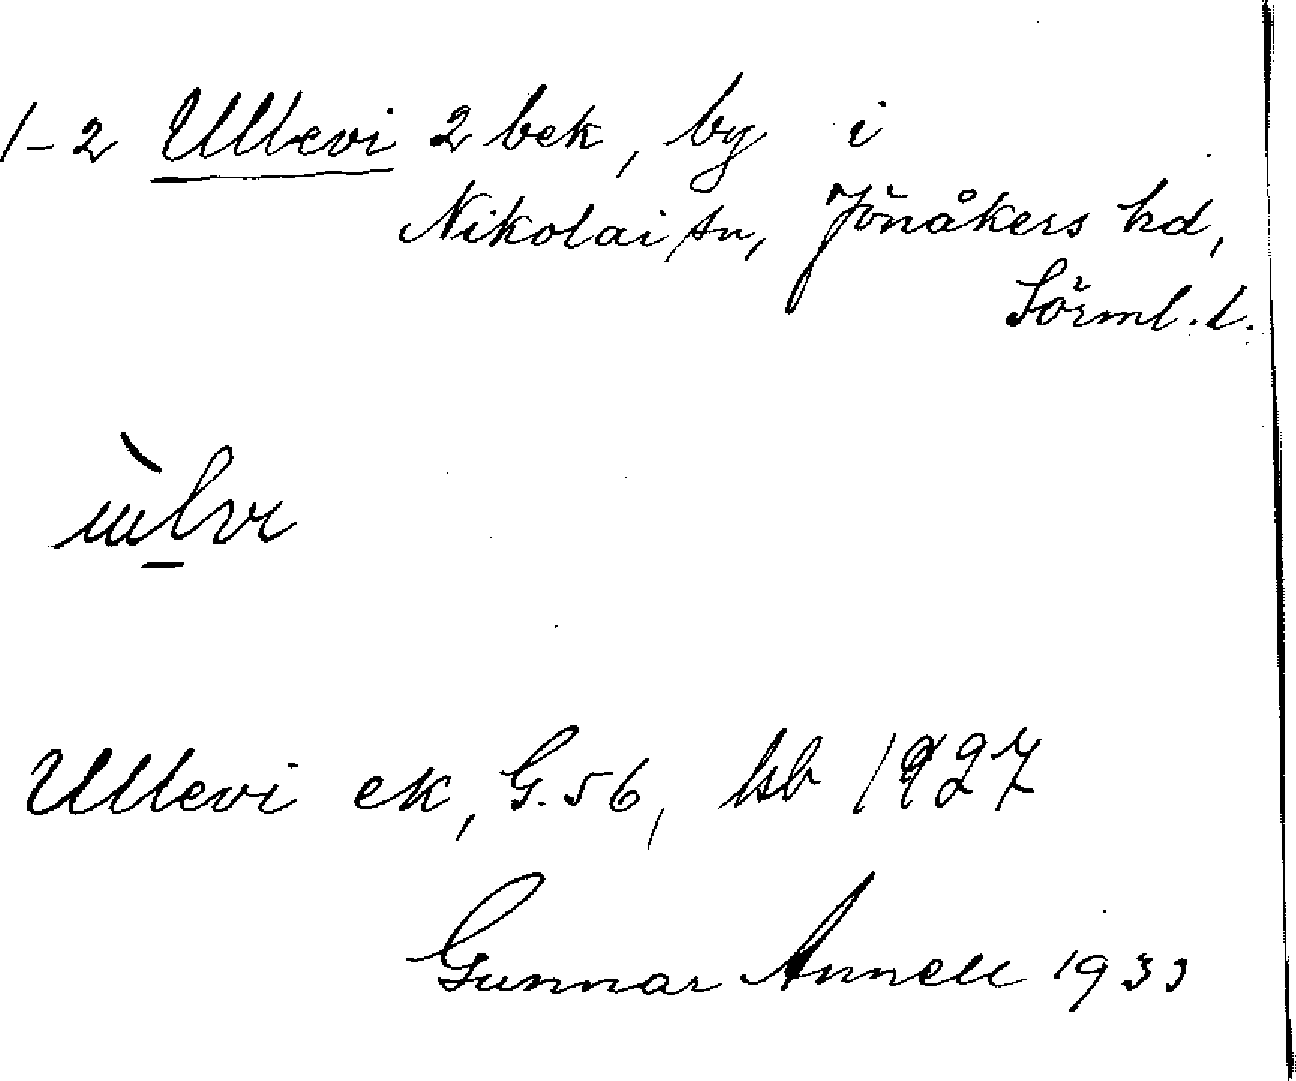 1-2 Ullevi 2 bek, by i
Nikolai sn, Jönåkers hd,
Sörml. l.
Ullevi ek, G. 56, hsb 1927
Gunnar Annell 1933